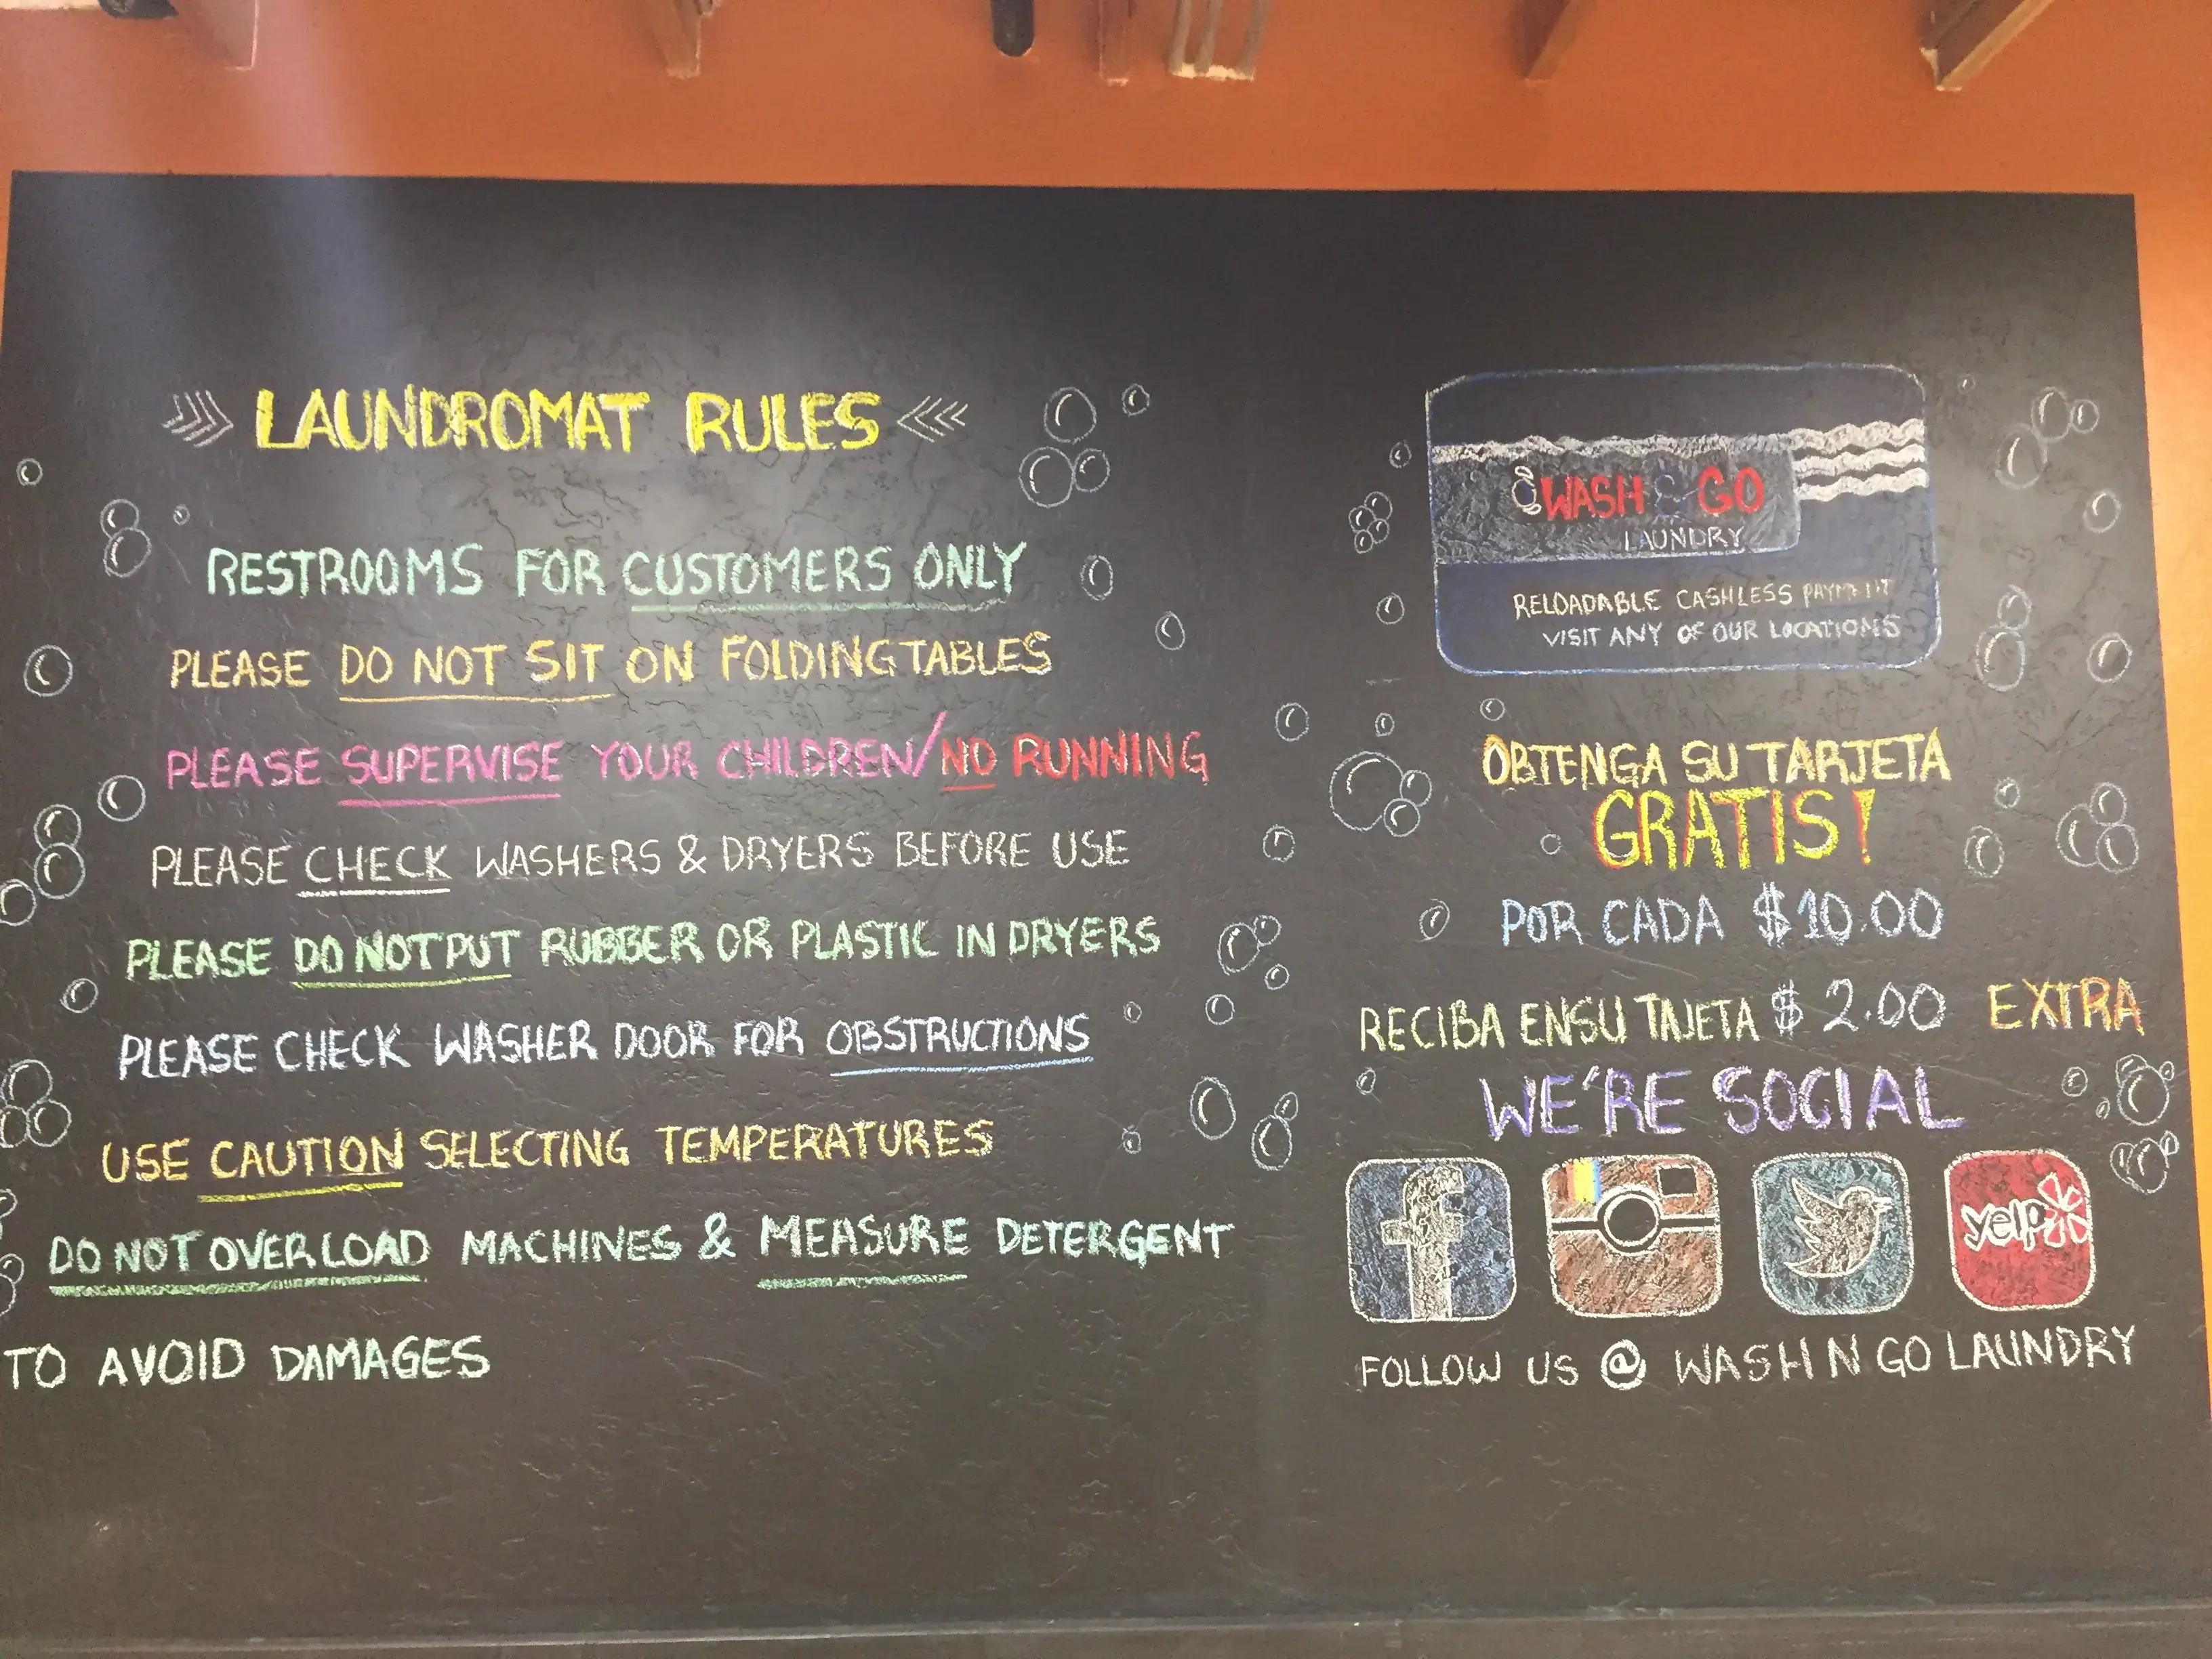 LAUNDROMAT RULES
RESTROOMS FOR CUSTOMERS ONLY
PLEASE DO NOT SIT ON FOLDING TABLES
PLEASE SUPERVISE YOUR CHILDREN/NO RUNNING
PLEASE CHECK WASHERS & DRYERS BEFORE USE
PLEASE DO NOT PUT RUBBER OR PLASTIC IN DRYERS
PLEASE CHECK WASHER DOOR FOR OBSTRUCTIONS
USE CAUTION SELECTING TEMPERATURES
DO NOT OVERLOAD MACHINES & MEASURE DETERGENT
TO AVOID DAMAGES
WASH & GO
LAUNDRY
RELOADABLE CASHLESS PAYMENT
VISIT ANY OF OUR LOCATIONS
OBTENGA SU TARJETA
GRATIS!
POR CADA $10.00
RECIBA EN SU TAJETA $2.00 EXTRA
WE'RE SOCIAL
f
yelp
FOLLOW US @ WASH N GO LAUNDRY